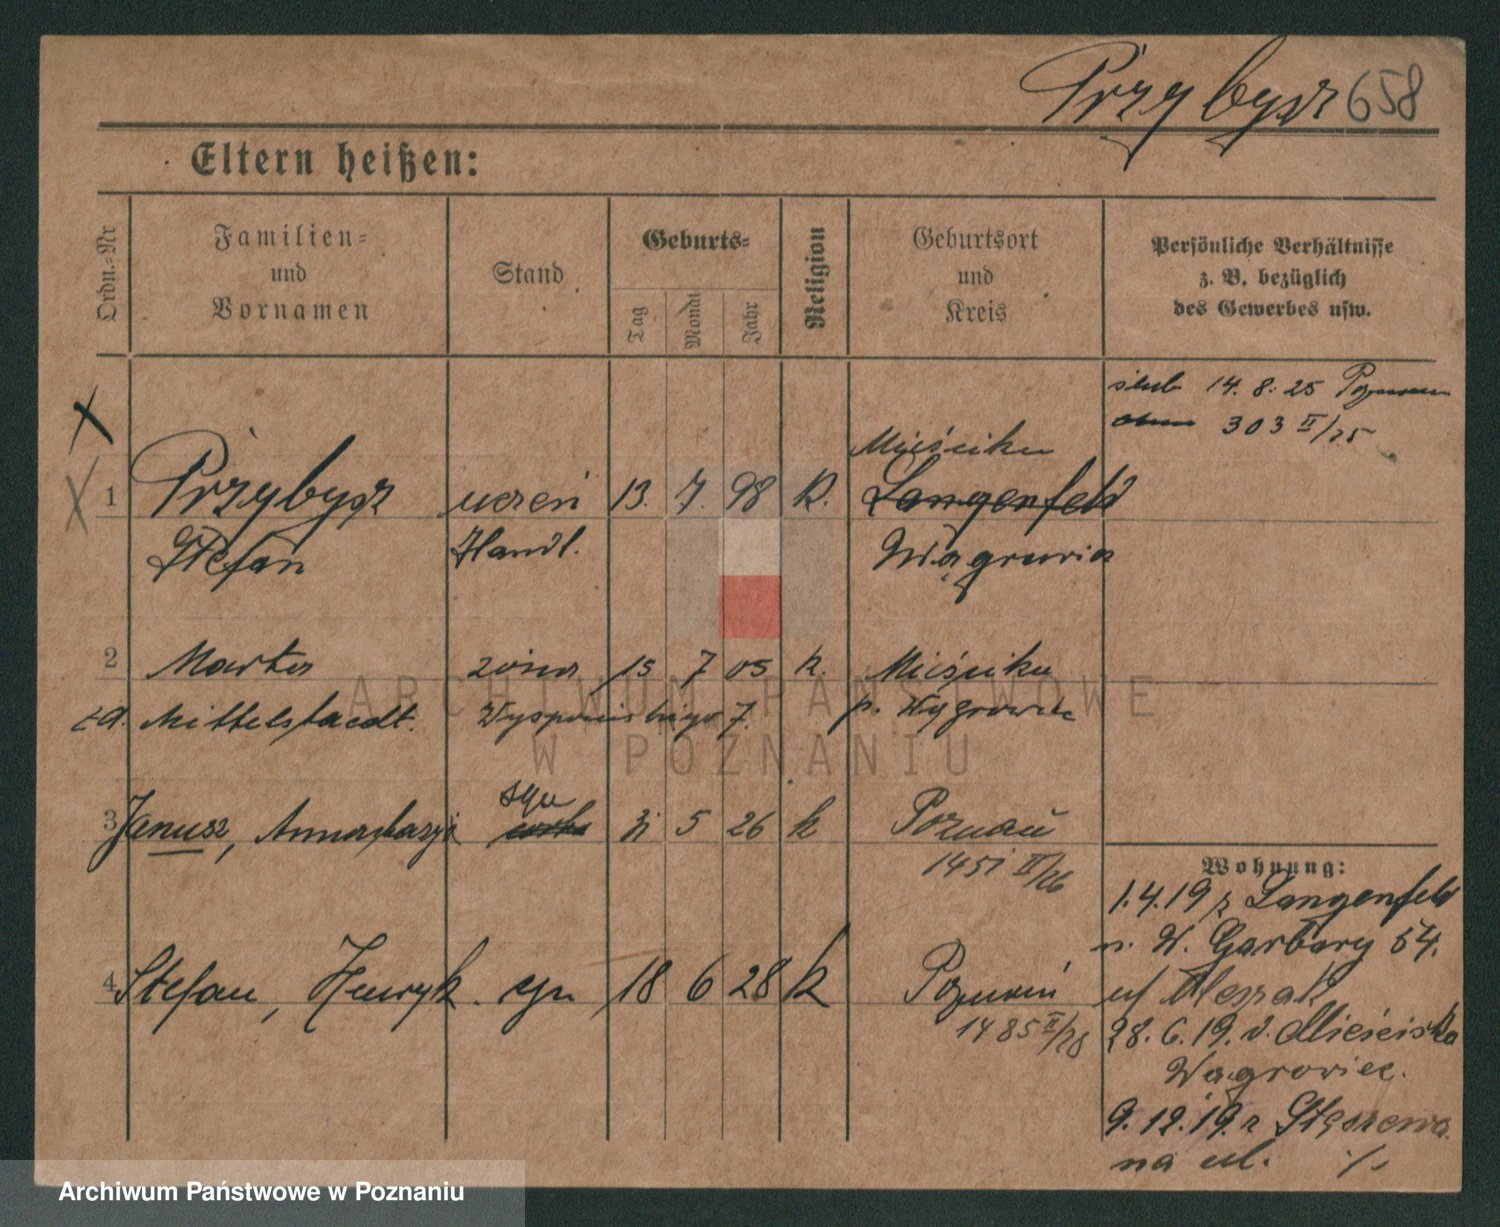 Przybysz 658
Eltern heißen:
Ordn.-Nr
Familien-
und
Vornamen
Stand
Geburts-
Tag
Monat
Jahr
Religion
Geburtsort
und
Kreis
Persönliche Verhältnisse
z. B. bezüglich
des Gewerbes usw.
ślub 14. 8. 25 Poznań
303 II/25
Mieścisku
1 Przybysz uczeń 13. 7. 98 k. Langenfeld
Stefan Handl. Wągrowiec
2 Marta żona 15 7 05 k. Mieścisku
Mittelstaedt. Wyspiańskiego 7. p. Wągrowiec
syn
3 Janusz, Anastazy 5 26 k Poznań
1451 II/26
Wohnung:
1.4.19 z Langenfeld
n. W. Garbary 54.
4 Stefan, Henryk syn 18 6 28 k Poznań
1485 II/28
28. 6. 19. d. Mieściska
Wągrowiec.
9. 12. 19. z Stęszewa
na ul. ./.
ARCHIWUM PAŃSTWOWE
W POZNANIU
Archiwum Państwowe w Poznaniu